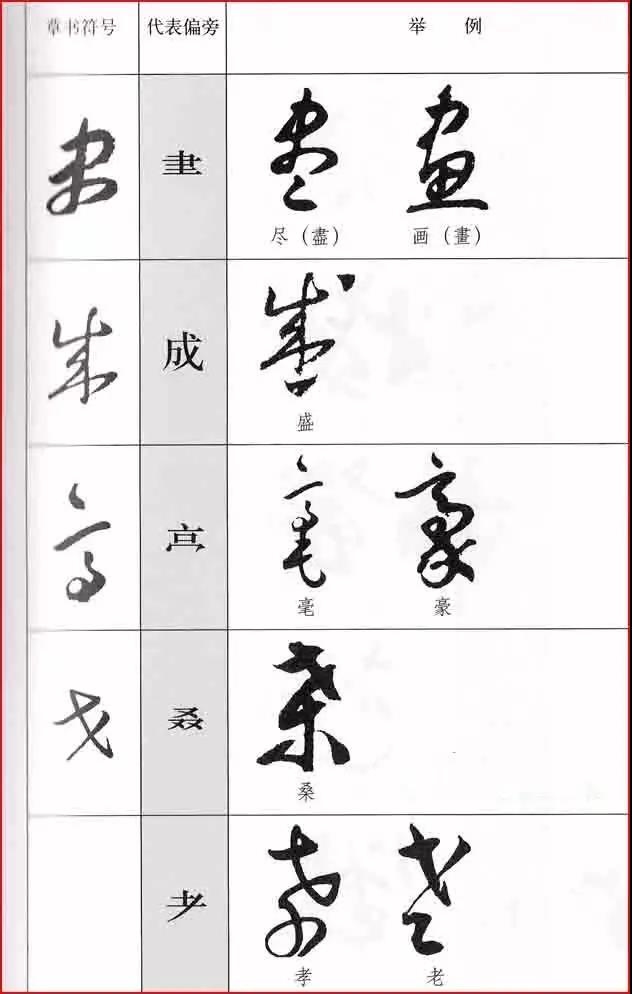 草书符号 代表偏旁 举例
尽（盡） 画（畫）
成
盛
毫 豪
叒
桑
耂
孝 老